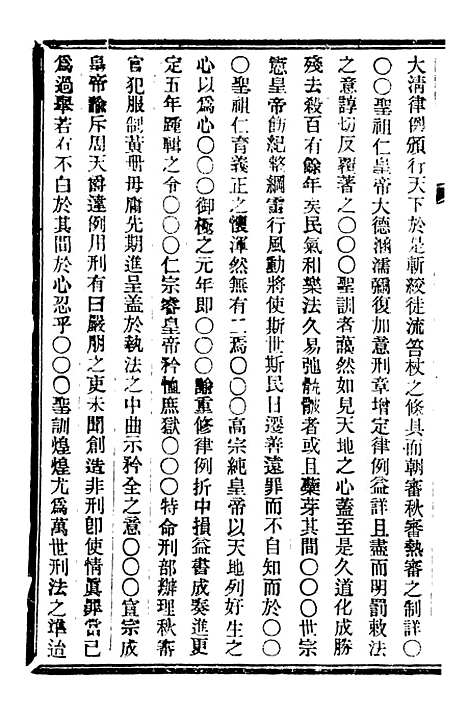 大淸律例頒行天下於是斬絞徒流笞杖之條具而朝審秋審熱審之制詳〇
〇〇聖祖仁皇帝大德涵濡彌復加意刑章增定律例益詳且盡而明罰敕法
之意諄切反覆著之〇〇〇聖訓者藹然如見天地之心蓋至是久道化成勝
殘去殺百有餘年矣民氣和樂法久易弛骫骳者或且蘖芽其間〇〇〇世宗
憲皇帝飭紀整綱雷行風動將使斯世斯民日遷善遠罪而不自知而於〇〇
〇聖祖仁育義正之懷渾然無有二焉〇〇〇高宗純皇帝以天地列好生之
心以爲心〇〇〇御極之元年卽〇〇〇諭重修律例折中損益書成奏進更
定五年踵輯之令〇〇〇仁宗睿皇帝矜恤庶獄〇〇〇特命刑部辦理秋審
官犯服制黃册毋庸先期進呈蓋於執法之中曲示矜全之意〇〇〇宣宗成
皇帝諭斥周天爵違例用刑有曰嚴朋之吏未聞創造非刑卽使情眞罪當已
爲過舉若石不白於其間於心忍乎〇〇〇聖訓煌煌尤爲萬世刑法之準迨